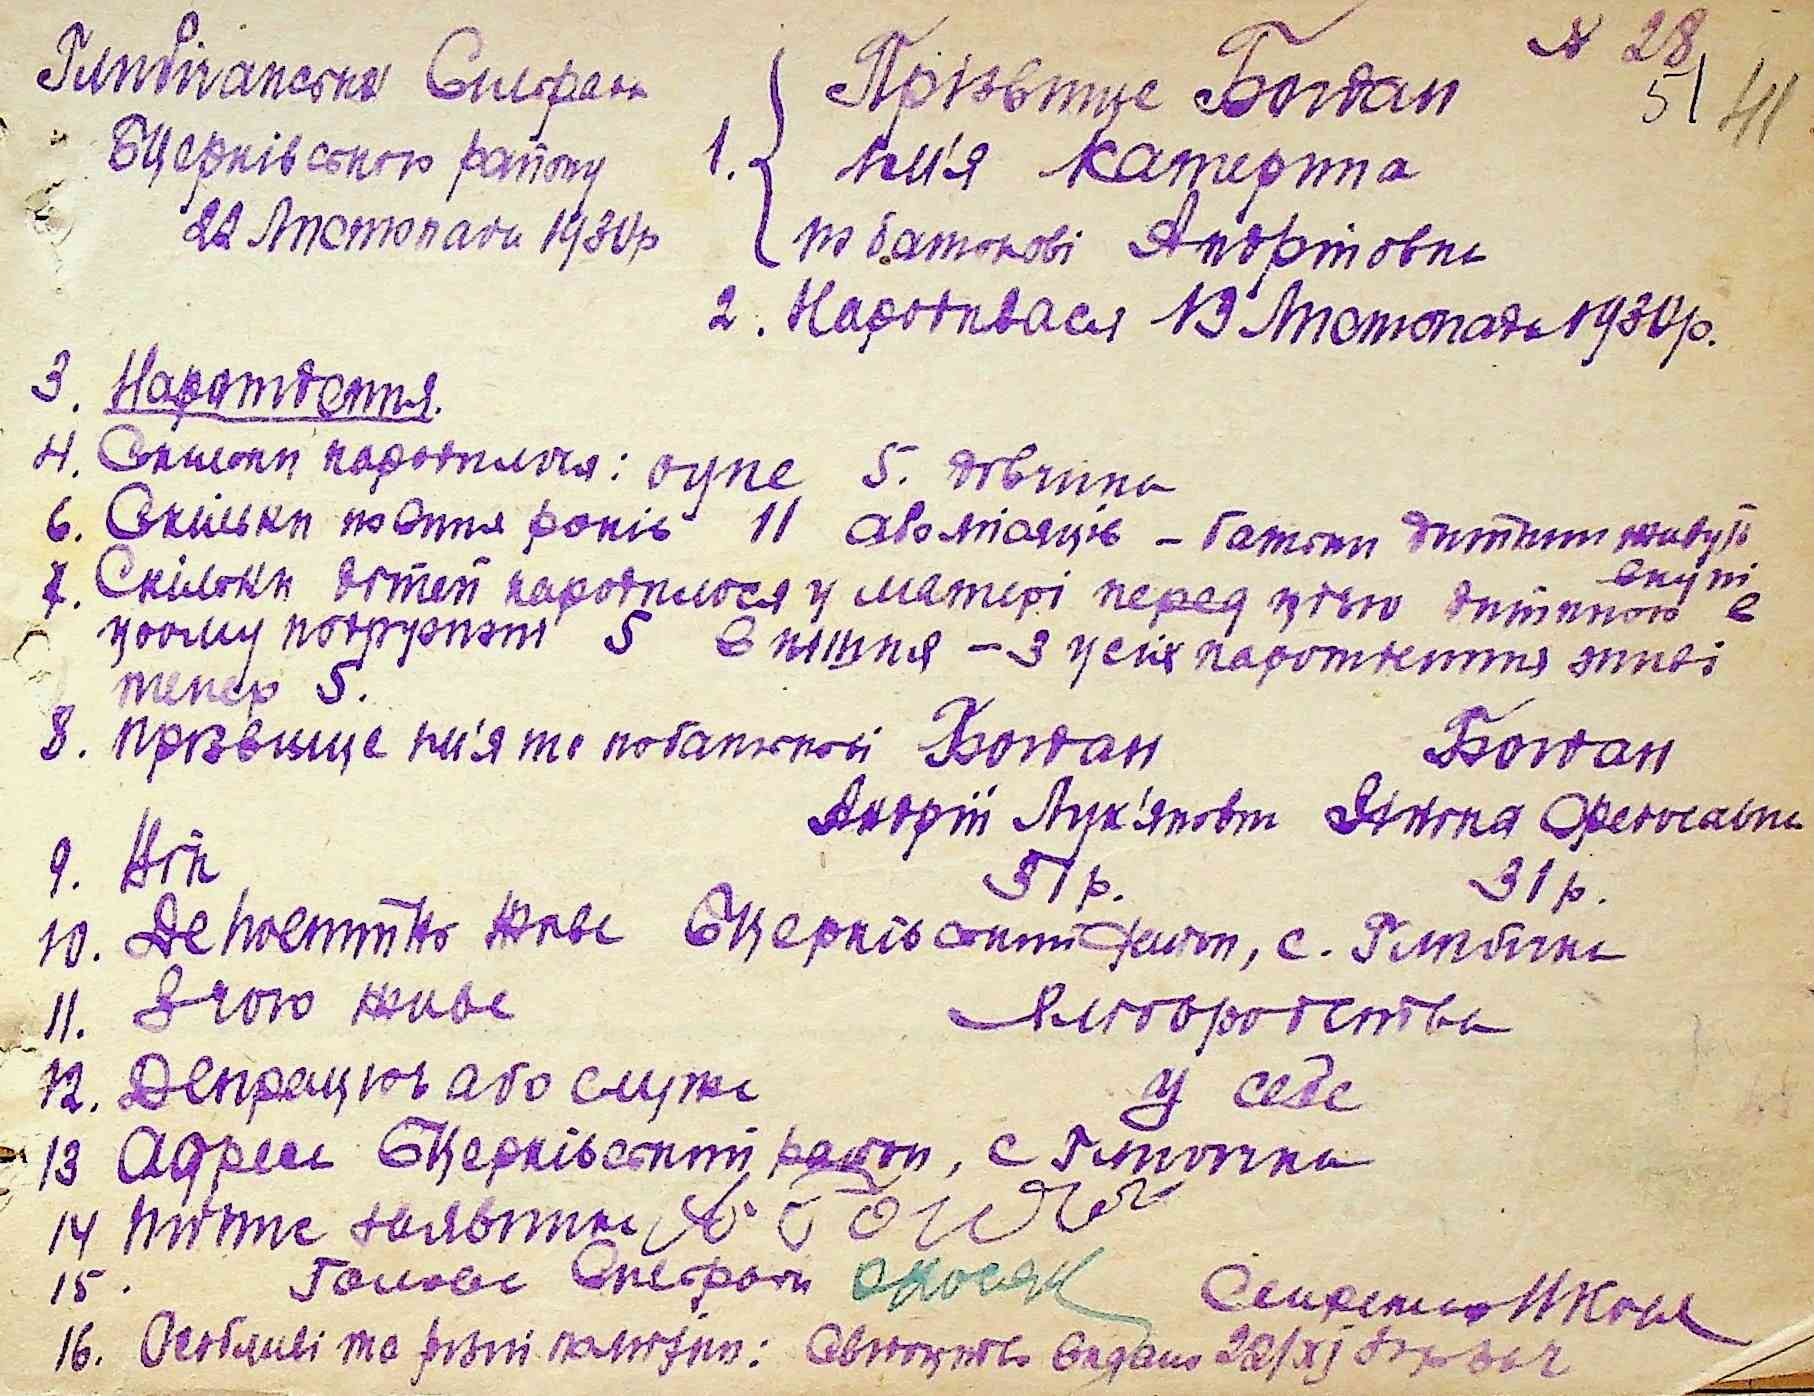 Глибічанська Сільрада
№ 28
51 41
БЦерківського району
22 Листопада 1930р
1. Прізвище Богдан
Ім'я Катерина
по батькові Андріївна
2. Народилася 13 Листопада 1930р.
3. Народження.
4. Скільки народилося: одне 5. дівчинка
6. Скільки повних років 11 або місяців – батьки дитини живуть
вкупі
7. Скільки дітей народилося у матері перед цією дитиною в
цьому подружжі 5 – З усіх народжених живі
тепер 5.
8. Прізвище ім'я та по батькові Богдан Богдан
Андрій Лук'янович Федосівна
9. Вік 31р.
10. Де постійно живе БЦерківський район, с. Глибічка
11. З чого живе Хліборобства
12. Де працює або служе У себе
13 Адреса БЦерківський район, с Глибічка
14 Підпис заявника
15. Голова Сільради Секретар
16. Особливі та різні помітки: видано 22/XI